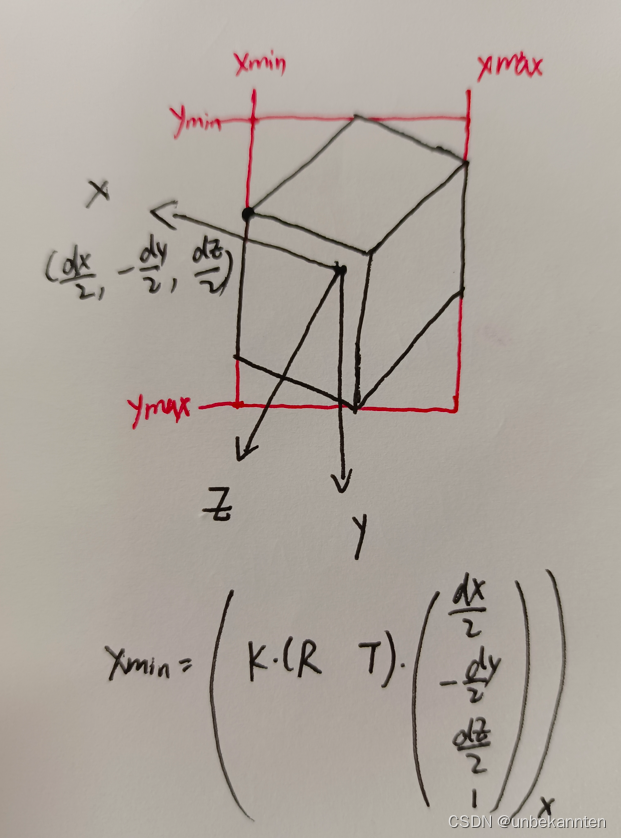 Xmin
Xmax
Ymin
X
(dx/2, -dy/2, dz/2)
Ymax
Z
y
Xmin = ( K·(R T)·( dx/2
-dy/2
dz/2
1 ) )x
CSDN @unbekannten